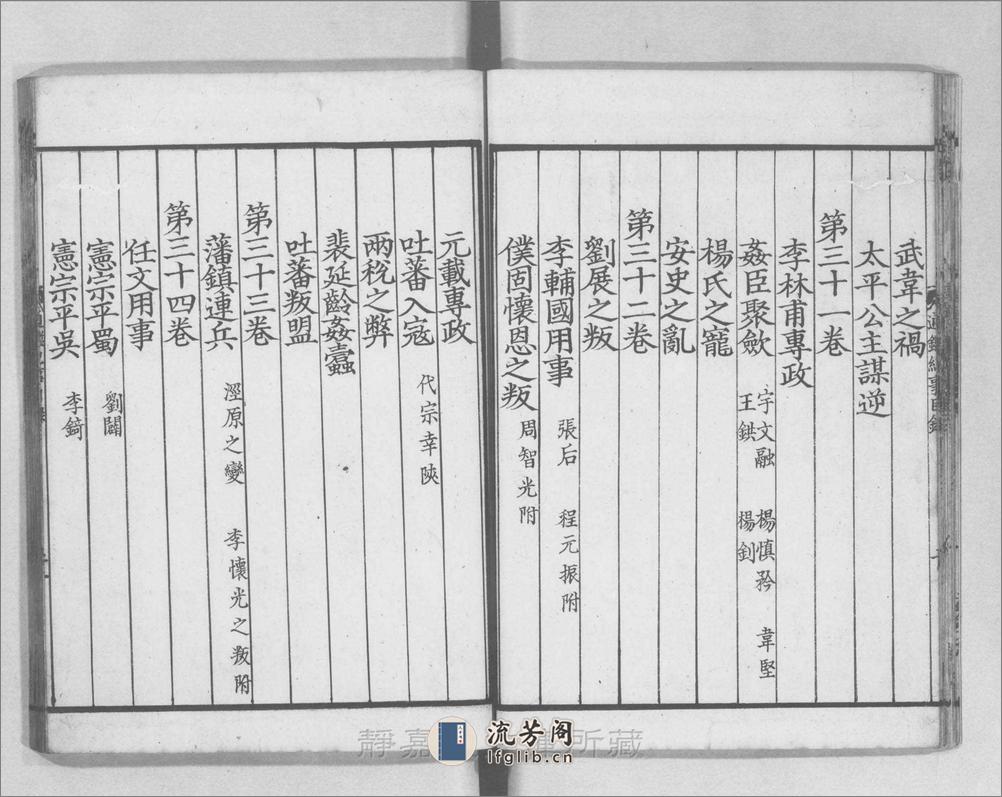 武韋之禍
太平公主謀逆
第三十一卷
李林甫專政
姦臣聚歛 宇文融 楊慎矜 韋堅 王鉷 楊釗
楊氏之寵
安史之亂
第三十二卷
劉展之叛
李輔國用事 張后 程元振附
僕固懷恩之叛 周智光附
元載專政
吐蕃入寇 代宗幸陜
兩稅之弊
裴延齡姦蠹
吐蕃叛盟
第三十三卷
藩鎮連兵 涇原之變 李懷光之叛附
第三十四卷
任文用事
憲宗平蜀 劉闢
憲宗平吳 李錡
流芳阁
lfglib.cn
靜嘉
所藏